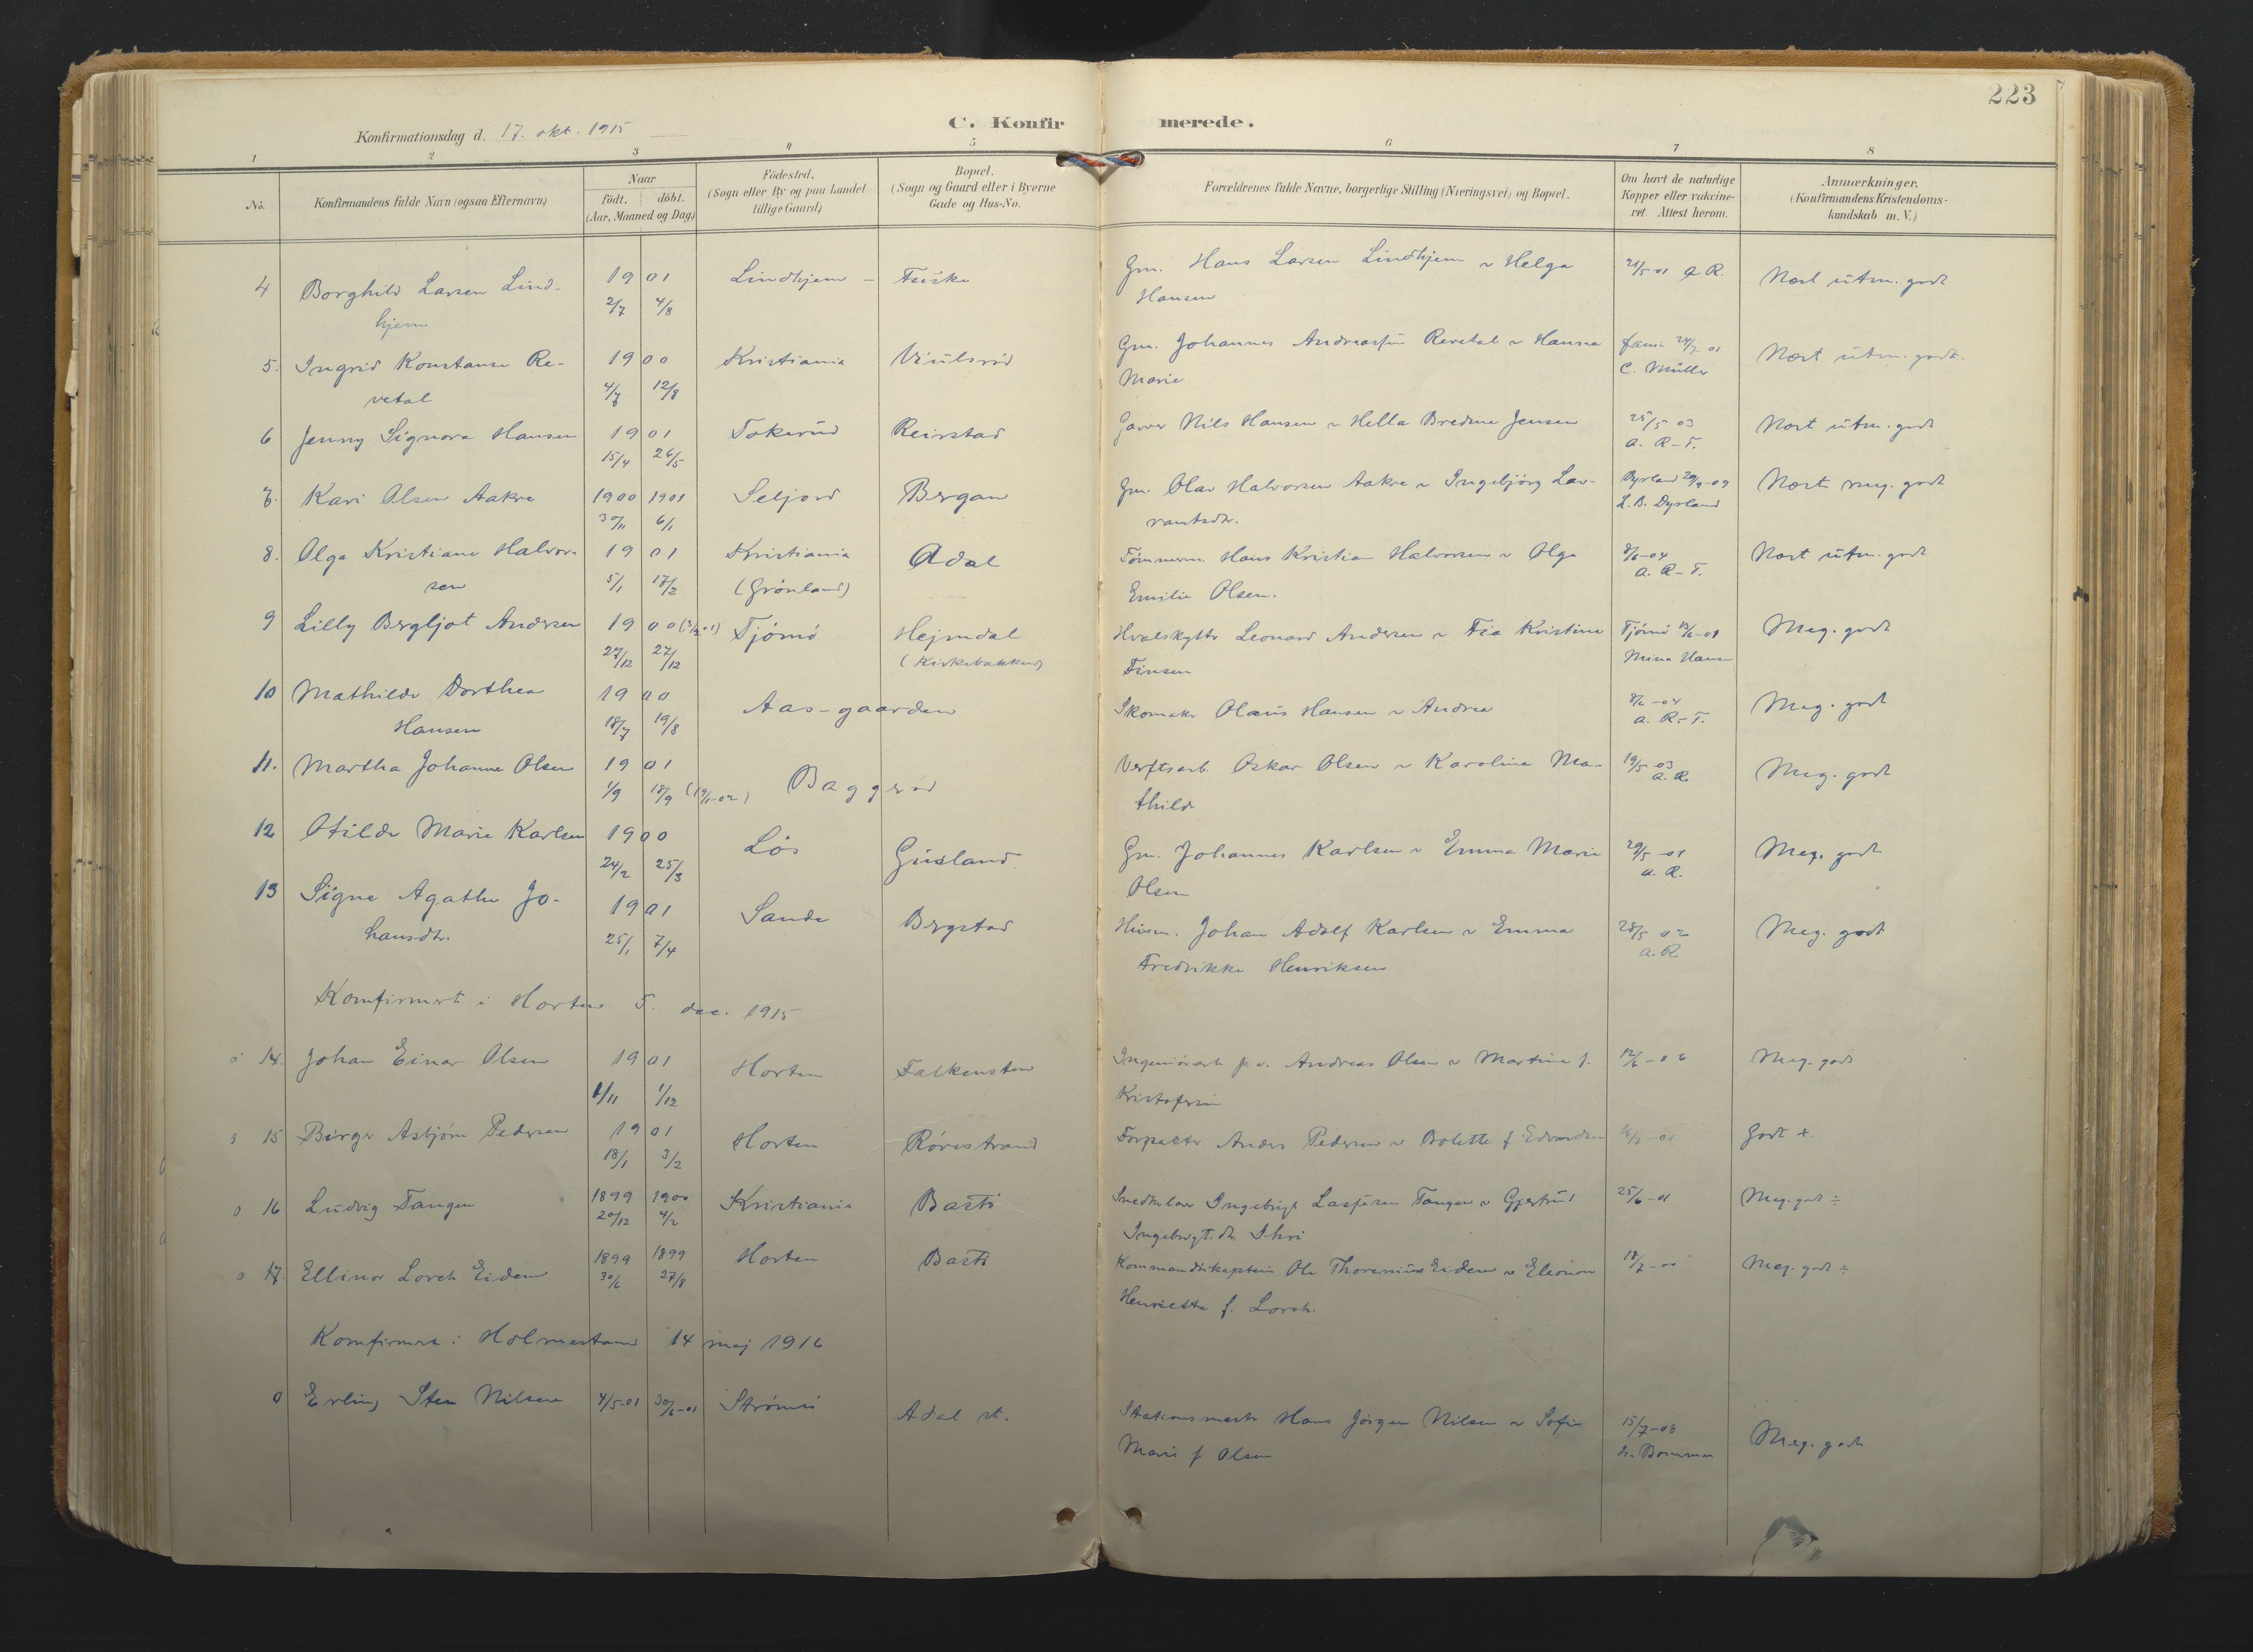 223
Konfirmationsdag d. 17. okt. 1915
C. Konfirmerede.
1 2 3 4 5 6 7 8
No.
Konfirmandens fulde Navn (ogsaa Efternavn)
Naar
födt. döbt.
(Aar, Maaned og Dag.)
Födested.
(Sogn eller By og paa Landet
tillige Gaard)
Bopæl.
(Sogn og Gaard eller i Byerne
Gade og Hus-No.
Forældrenes fulde Navne, borgerlige Stilling (Næringsvei) og Bopæl.
Om havt de naturlige
Kopper eller vakcine-
ret. Attest herom.
Anmærkninger.
(Konfirmandens Kristendoms-
kundskab m. V.)
4 Borghild Larsen Lind- 1901 Lindhjem – Fuske Gm. Hans Larsen Lindhjem & Helga 21/5 01 A R. Næst utm. godt
hjem 2/7 4/8 Hansen
5. Ingrid Konstanse Re- 1900 Kristiania Viulsrød Gm. Johannes Andreassen Revetal & Hanna 24/7 01 Næst utm. godt.
vetal 4/7 12/8 Marie C. Müller
6 Jenny Signora Hansen 1901 Tokerud Reirstad Garver Nils Hansen & Hella Bredine Jensen 25/5 03 Næst utm. godt
15/4 26/5 A. R–T.
7. Kari Olsen Aakre 1900 1901 Seljord Bergan Gm. Olav Halvorsen Aakre & Ingebjörg Lav- Næst meg. godt
30/11 6/1 rantsdtr. L. B. Dyrland
8. Olga Kristiane Halvor- 1901 Kristiania Adal Tömmerm. Hans Kristian Halvorsen & Olga 8/6–04 Næst utm. godt
sen 5/1 17/2 (Grönland) Emilie Olsen. A. R–T.
9 Lilly Bergljot Andersen 1900 Tjömö Hejmdal Hvalskytter Leonard Andersen & Fia Kristine Tjömö Meg. godt
27/12 27/12 (Kirkebakken) Finsen Mina Hans
10 Mathilde Dorthea 1900 Aas-gaarden Skomaker Olaus Hansen & Andrea 8/6–04 Meg. godt
Hansen 18/7 19/8 A. R.–T.
11. Martha Johanne Olsen 1901 Baggerød Verftsarb. Oskar Olsen & Karoline Ma- 19/5 03 Meg. godt
1/9 18/9 thilde A. R.
12 Otilde Marie Karlsen 1900 Lös Gusland Gm. Johannes Karlsen & Emma Marie 29/5–01 Meg. godt
24/2 25/3 Olsen A. R.
13 Signe Agathe Jo- 1901 Sande Bergstad Husm. Johan Adolf Karlsen & Emma 28/5 02 Meg. godt
hansdtr. 25/1 7/4 Fredrikke Henriksen A. R.
Komfirmert i Horten 5. dec. 1915
14. Johan Einar Olsen 1901 Horten Falkensten Andreas Olsen & Martine f. 12/6–06 Meg. godt
1/11 1/12 Kristofersen
15 Birger Asbjörn Pedersen 1901 Horten Rörestrand Forpakter Anders Pedersen & Bolette f Edvardsen Godt +.
18/1 3/2
16 Ludvig Tangen 1899 1900 Kristiania Bastö Snedkelær Ingebrigt Tangen & Gjertrud 25/6–01 Meg. godt ÷
20/12 4/2 Ingebrigt.dtr.
17. Ellinor Lorch Eiden 1899 1899 Horten Bastö Kommandörkaptein Ole Thorenius Eiden & Eleonora 18/7–00 Meg. godt ÷
30/6 27/8 Henriette f. Lorch.
Komfirmert i Holmestrand 14 maj 1916
0 Erling Sten Nilsen 4/5–01 30/6–01 Strömsö Adal st. Stationsmester Hans Jörgen Nilsen & Sofie 15/7–08 Meg. godt
Marie f Olsen